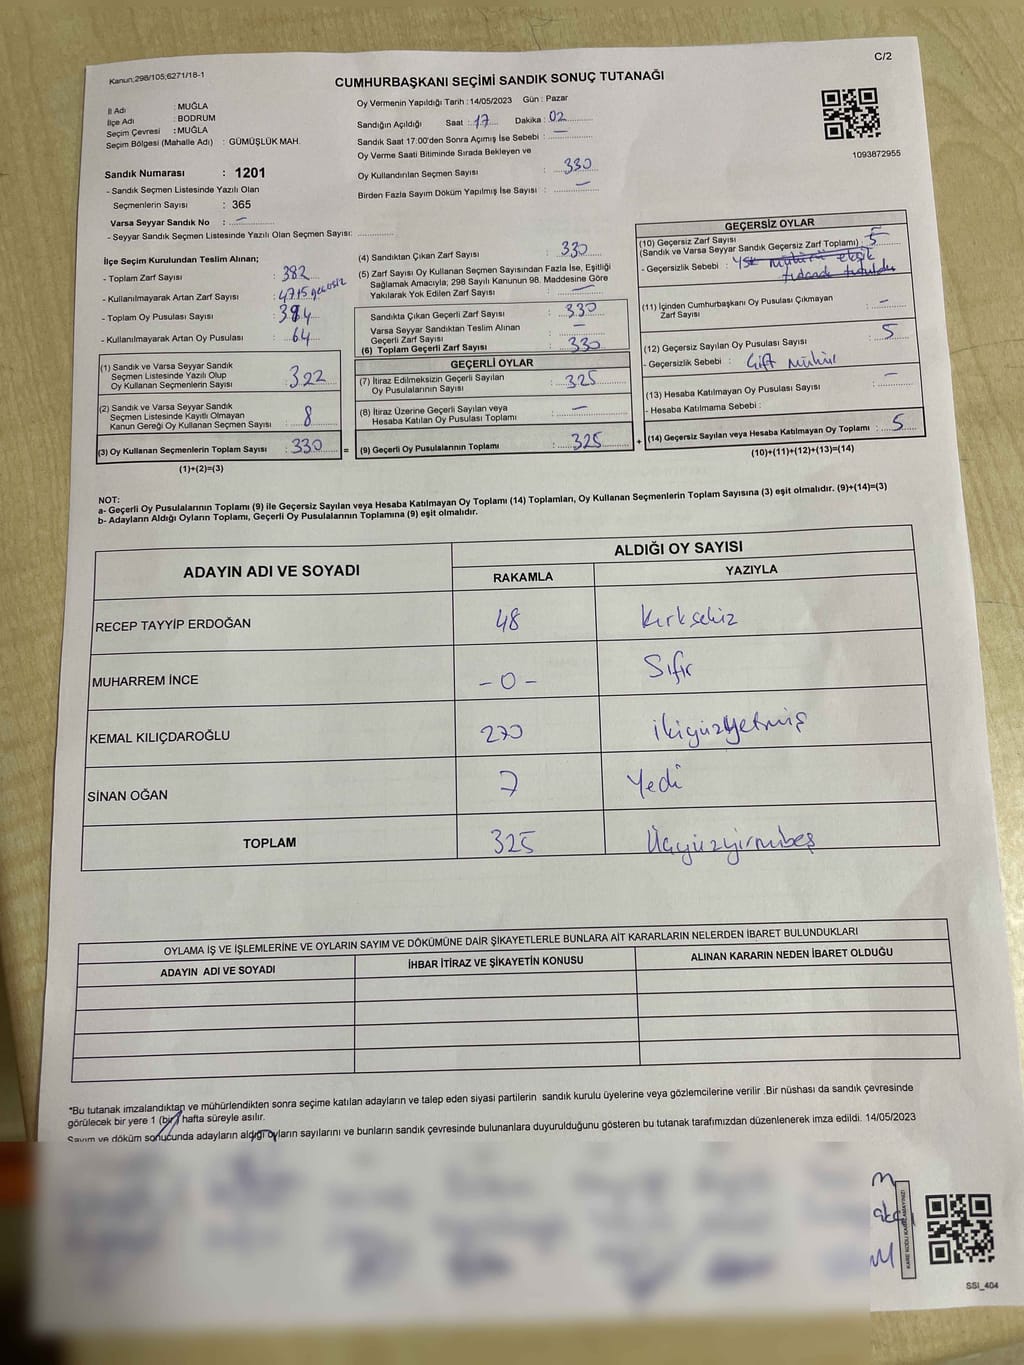 Kanun;298/105;6271/18-1
C/2
CUMHURBAŞKANI SEÇİMİ SANDIK SONUÇ TUTANAĞI
İl Adı : MUĞLA
İlçe Adı : BODRUM
Seçim Çevresi : MUĞLA
Seçim Bölgesi (Mahalle Adı) : GÜMÜŞLÜK MAH.
Oy Vermenin Yapıldığı Tarih : 14/05/2023 Gün : Pazar
Sandığın Açıldığı Saat : 17 Dakika : 02
Sandık Saat 17:00'den Sonra Açımış İse Sebebi : —
Oy Verme Saati Bitiminde Sırada Bekleyen ve
Oy Kullandırılan Seçmen Sayısı : 330
Birden Fazla Sayım Döküm Yapılmış İse Sayısı : —
1093872955
Sandık Numarası : 1201
- Sandık Seçmen Listesinde Yazılı Olan
Seçmenlerin Sayısı : 365
Varsa Seyyar Sandık No : —
- Seyyar Sandık Seçmen Listesinde Yazılı Olan Seçmen Sayısı:
İlçe Seçim Kurulundan Teslim Alınan;
- Toplam Zarf Sayısı : 382
- Kullanılmayarak Artan Zarf Sayısı :
- Toplam Oy Pusulası Sayısı : 394
- Kullanılmayarak Artan Oy Pusulası : 64
(1) Sandık ve Varsa Seyyar Sandık
Seçmen Listesinde Yazılı Olup
Oy Kullanan Seçmenlerin Sayısı : 322
(2) Sandık ve Varsa Seyyar Sandık
Seçmen Listesinde Kayıtlı Olmayan
Kanun Gereği Oy Kullanan Seçmen Sayısı : 8
(3) Oy Kullanan Seçmenlerin Toplam Sayısı : 330 =
(1)+(2)=(3)
(4) Sandıktan Çıkan Zarf Sayısı : 330
(5) Zarf Sayısı Oy Kullanan Seçmen Sayısından Fazla İse, Eşitliği
Sağlamak Amacıyla; 298 Sayılı Kanunun 98. Maddesine Göre
Yakılarak Yok Edilen Zarf Sayısı : —
Sandıkta Çıkan Geçerli Zarf Sayısı : 330
Varsa Seyyar Sandıktan Teslim Alınan
Geçerli Zarf Sayısı : —
(6) Toplam Geçerli Zarf Sayısı : 330
GEÇERLİ OYLAR
(7) İtiraz Edilmeksizin Geçerli Sayılan
Oy Pusulalarının Sayısı : 325
(8) İtiraz Üzerine Geçerli Sayılan veya
Hesaba Katılan Oy Pusulası Toplamı : —
(9) Geçerli Oy Pusulalarının Toplamı : 325 +
GEÇERSİZ OYLAR
(10) Geçersiz Zarf Sayısı
(Sandık ve Varsa Seyyar Sandık Geçersiz Zarf Toplamı) : 5
- Geçersizlik Sebebi : YSK mührü eksik
tutuldu
(11) İçinden Cumhurbaşkanı Oy Pusulası Çıkmayan
Zarf Sayısı : —
(12) Geçersiz Sayılan Oy Pusulası Sayısı : 5
- Geçersizlik Sebebi : Çift Mühür
(13) Hesaba Katılmayan Oy Pusulası Sayısı : —
- Hesaba Katılmama Sebebi :
(14) Geçersiz Sayılan veya Hesaba Katılmayan Oy Toplamı : 5
(10)+(11)+(12)+(13)=(14)
NOT:
a- Geçerli Oy Pusulalarının Toplamı (9) ile Geçersiz Sayılan veya Hesaba Katılmayan Oy Toplamı (14) Toplamları, Oy Kullanan Seçmenlerin Toplam Sayısına (3) eşit olmalıdır. (9)+(14)=(3)
b- Adayların Aldığı Oyların Toplamı, Geçerli Oy Pusulalarının Toplamına (9) eşit olmalıdır.
ADAYIN ADI VE SOYADI
ALDIĞI OY SAYISI
RAKAMLA YAZIYLA
RECEP TAYYİP ERDOĞAN 48 Kırksekiz
MUHARREM İNCE - 0 - Sıfır
KEMAL KILIÇDAROĞLU 270 ikiyüzyetmiş
SİNAN OĞAN 7 Yedi
TOPLAM 325 Üçyüzyirmibeş
OYLAMA İŞ VE İŞLEMLERİNE VE OYLARIN SAYIM VE DÖKÜMÜNE DAİR ŞİKAYETLERLE BUNLARA AİT KARARLARIN NELERDEN İBARET BULUNDUKLARI
ADAYIN ADI VE SOYADI İHBAR İTİRAZ VE ŞİKAYETİN KONUSU ALINAN KARARIN NEDEN İBARET OLDUĞU
*Bu tutanak imzalandıktan ve mühürlendikten sonra seçime katılan adayların ve talep eden siyasi partilerin sandık kurulu üyelerine veya gözlemcilerine verilir .Bir nüshası da sandık çevresinde
görülecek bir yere 1 (bir) hafta süreyle asılır.
Sayım ve döküm sonucunda adayların aldığı oyların sayılarını ve bunların sandık çevresinde bulunanlara duyurulduğunu gösteren bu tutanak tarafımızdan düzenlenerek imza edildi. 14/05/2023
SSI_404